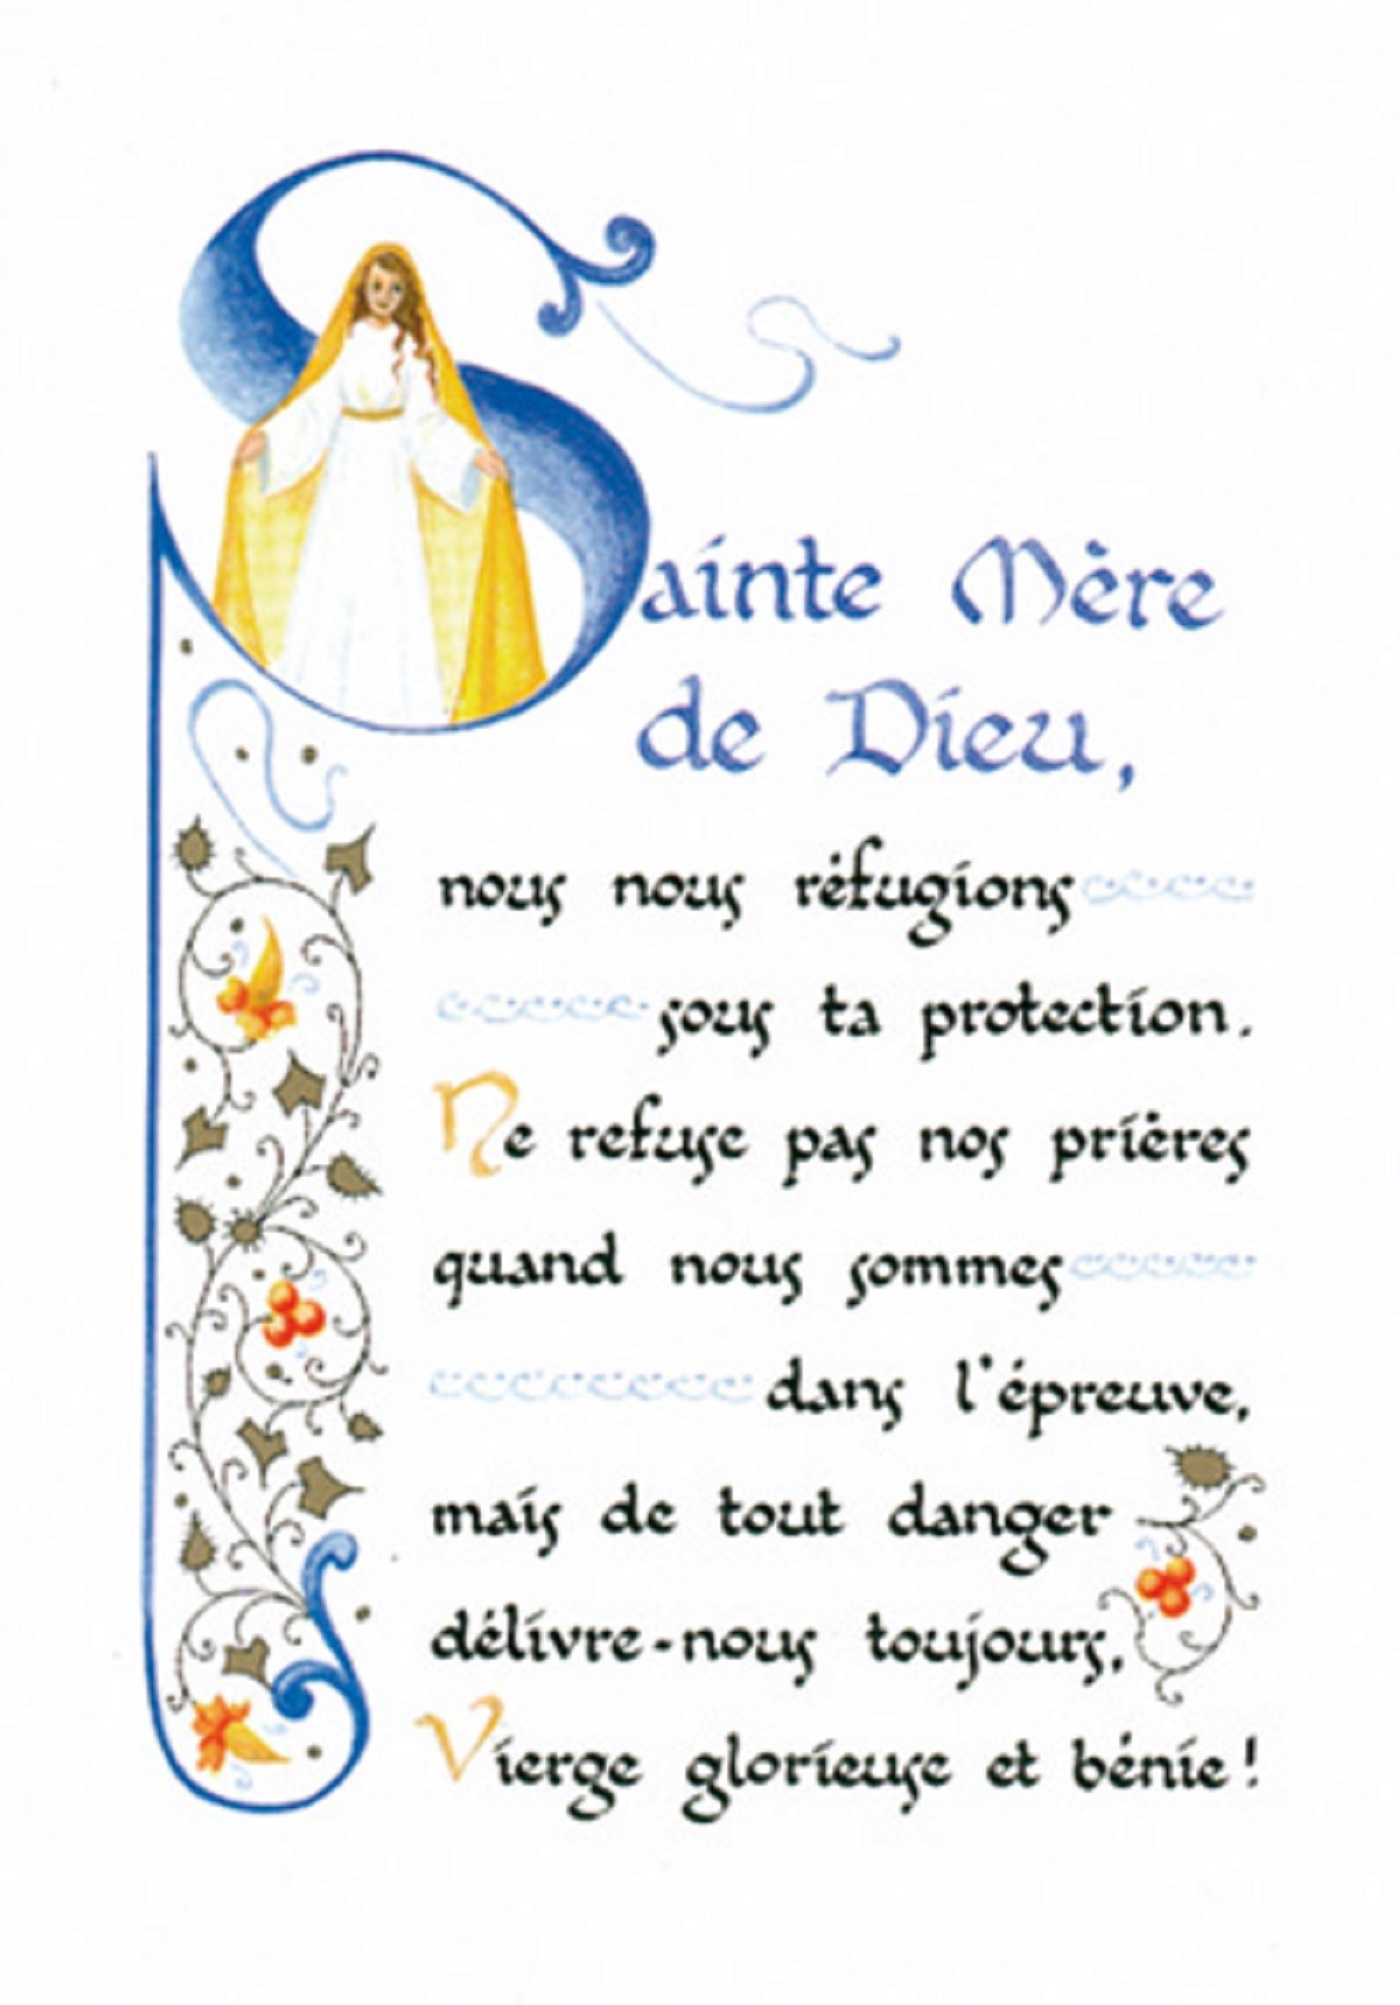 Sainte Mère
de Dieu,
nous nous réfugions
sous ta protection.
Ne refuse pas nos prières
quand nous sommes
dans l'épreuve,
mais de tout danger
délivre-nous toujours,
Vierge glorieuse et bénie!